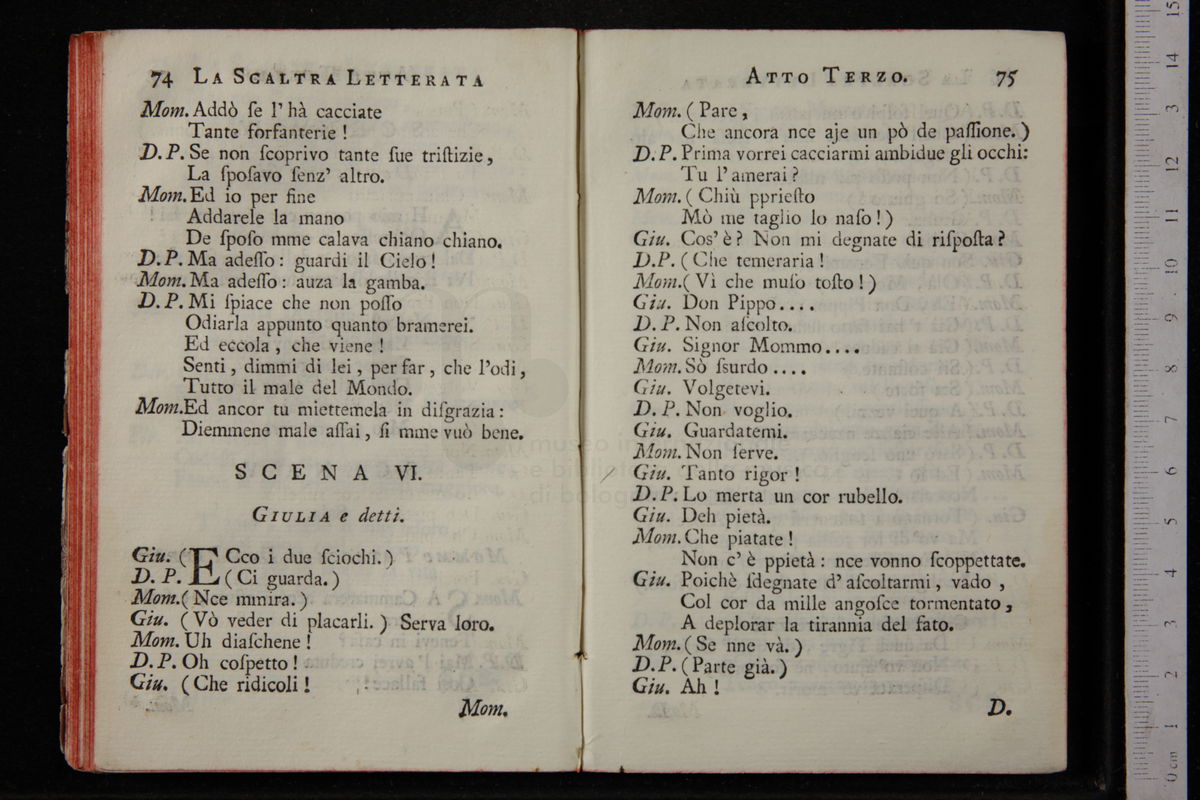 74 LA SCALTRA LETTERATA
Mom. Addò ſe l' hà cacciate
Tante forfanterie !
D. P. Se non ſcoprivo tante ſue triſtizie,
La ſpoſavo ſenz' altro.
Mom. Ed io per fine
Addarele la mano
De ſpoſo mme calava chiano chiano.
D. P. Ma adeſſo : guardi il Cielo !
Mom. Ma adeſſo : auza la gamba.
D. P. Mi ſpiace che non poſſo
Odiarla appunto quanto bramerei.
Ed eccola , che viene !
Senti , dimmi di lei , per far , che l'odi,
Tutto il male del Mondo.
Mom. Ed ancor tu miettemela in diſgrazia :
Diemmene male aſſai , ſi mme vuò bene.
SCENA VI.
GIULIA e detti.
Giu. ( ECco i due ſciochi. )
D. P. ( Ci guarda. )
Mom. ( Nce mmira. )
Giu. ( Vò veder di placarli. ) Serva loro.
Mom. Uh diaſchene !
D. P. Oh coſpetto !
Giu. ( Che ridicoli !
Mom.
ATTO TERZO. 75
Mom. ( Pare ,
Che ancora nce aje un pò de paſſione. )
D. P. Prima vorrei cacciarmi ambidue gli occhi:
Tu l' amerai ?
Mom. ( Chiù pprieſto
Mò me taglio lo naſo ! )
Giu. Cos' è ? Non mi degnate di riſpoſta ?
D.P. ( Che temeraria !
Mom. ( Vì che muſo toſto ! )
Giu. Don Pippo....
D. P. Non aſcolto.
Giu. Signor Mommo....
Mom. Sò ſsurdo ....
Giu. Volgetevi.
D. P. Non voglio.
Giu. Guardatemi.
Mom. Non ſerve.
Giu. Tanto rigor !
D. P. Lo merta un cor rubello.
Giu. Deh pietà.
Mom. Che piatate !
Non c' è ppietà : nce vonno ſcoppettate.
Giu. Poichè ſdegnate d' aſcoltarmi , vado ,
Col cor da mille angoſce tormentato ,
A deplorar la tirannia del fato.
Mom. ( Se nne và. )
D.P. ( Parte già. )
Giu. Ah !
D.